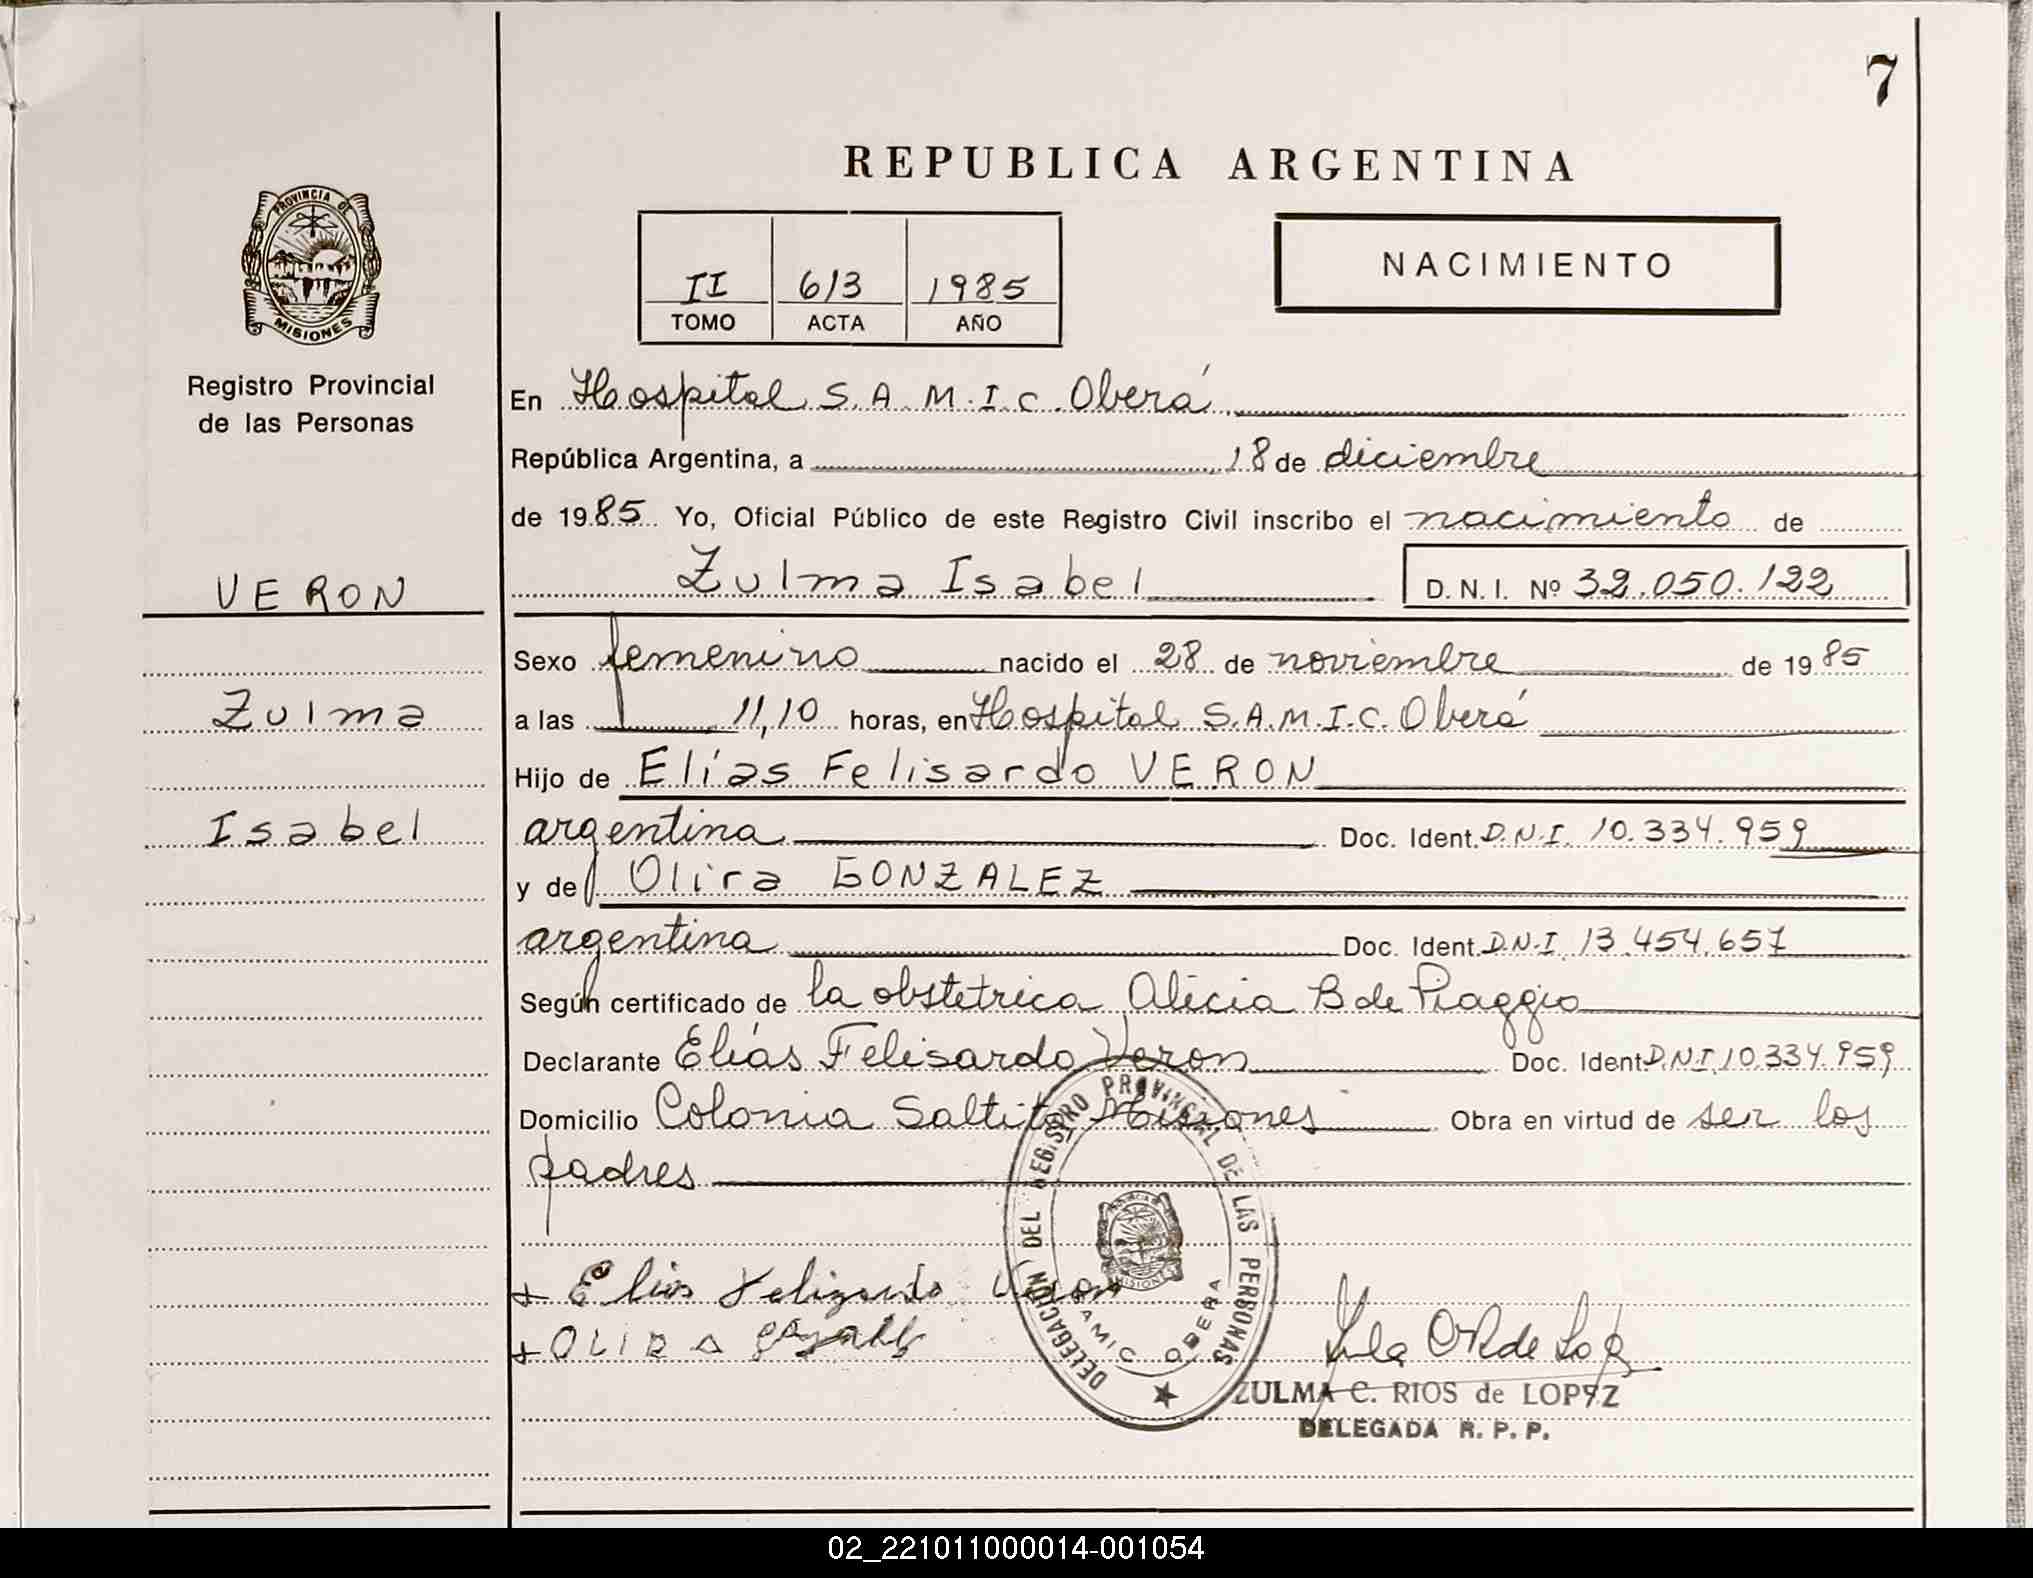 7
REPUBLICA ARGENTINA
PROVINCIA DE
MISIONES
Registro Provincial
de las Personas
II 613 1985
TOMO ACTA AÑO
NACIMIENTO
En Hospital S.A.M.I.C. Oberá
República Argentina, a 18 de diciembre
de 1985 Yo, Oficial Público de este Registro Civil inscribo el nacimiento de
VERON
Zulma Isabel D.N.I. Nº 32.050.122
Sexo femenino nacido el 28 de noviembre de 1985
Zulma
a las 11,10 horas, en Hospital S.A.M.I.C. Oberá
Hijo de Elías Felisardo VERON
Isabel
argentina Doc. Ident. D.N.I. 10.334.959
y de Olira GONZALEZ
argentina Doc. Ident. D.N.I. 13.454.657
Según certificado de la obstetrica Alicia B de Piaggio
Declarante Elías Felisardo Veron Doc. Ident. D.N.I. 10.334.959
Domicilio Colonia Saltito Misiones Obra en virtud de ser los
padres
DELEGACION DEL REGISTRO PROVINCIAL DE LAS PERSONAS
SAMIC OBERA
+ Elias Felizardo Veron
+ OLIRA
ZULMA C. RIOS de LOPEZ
DELEGADA R. P. P.
02_221011000014-001054